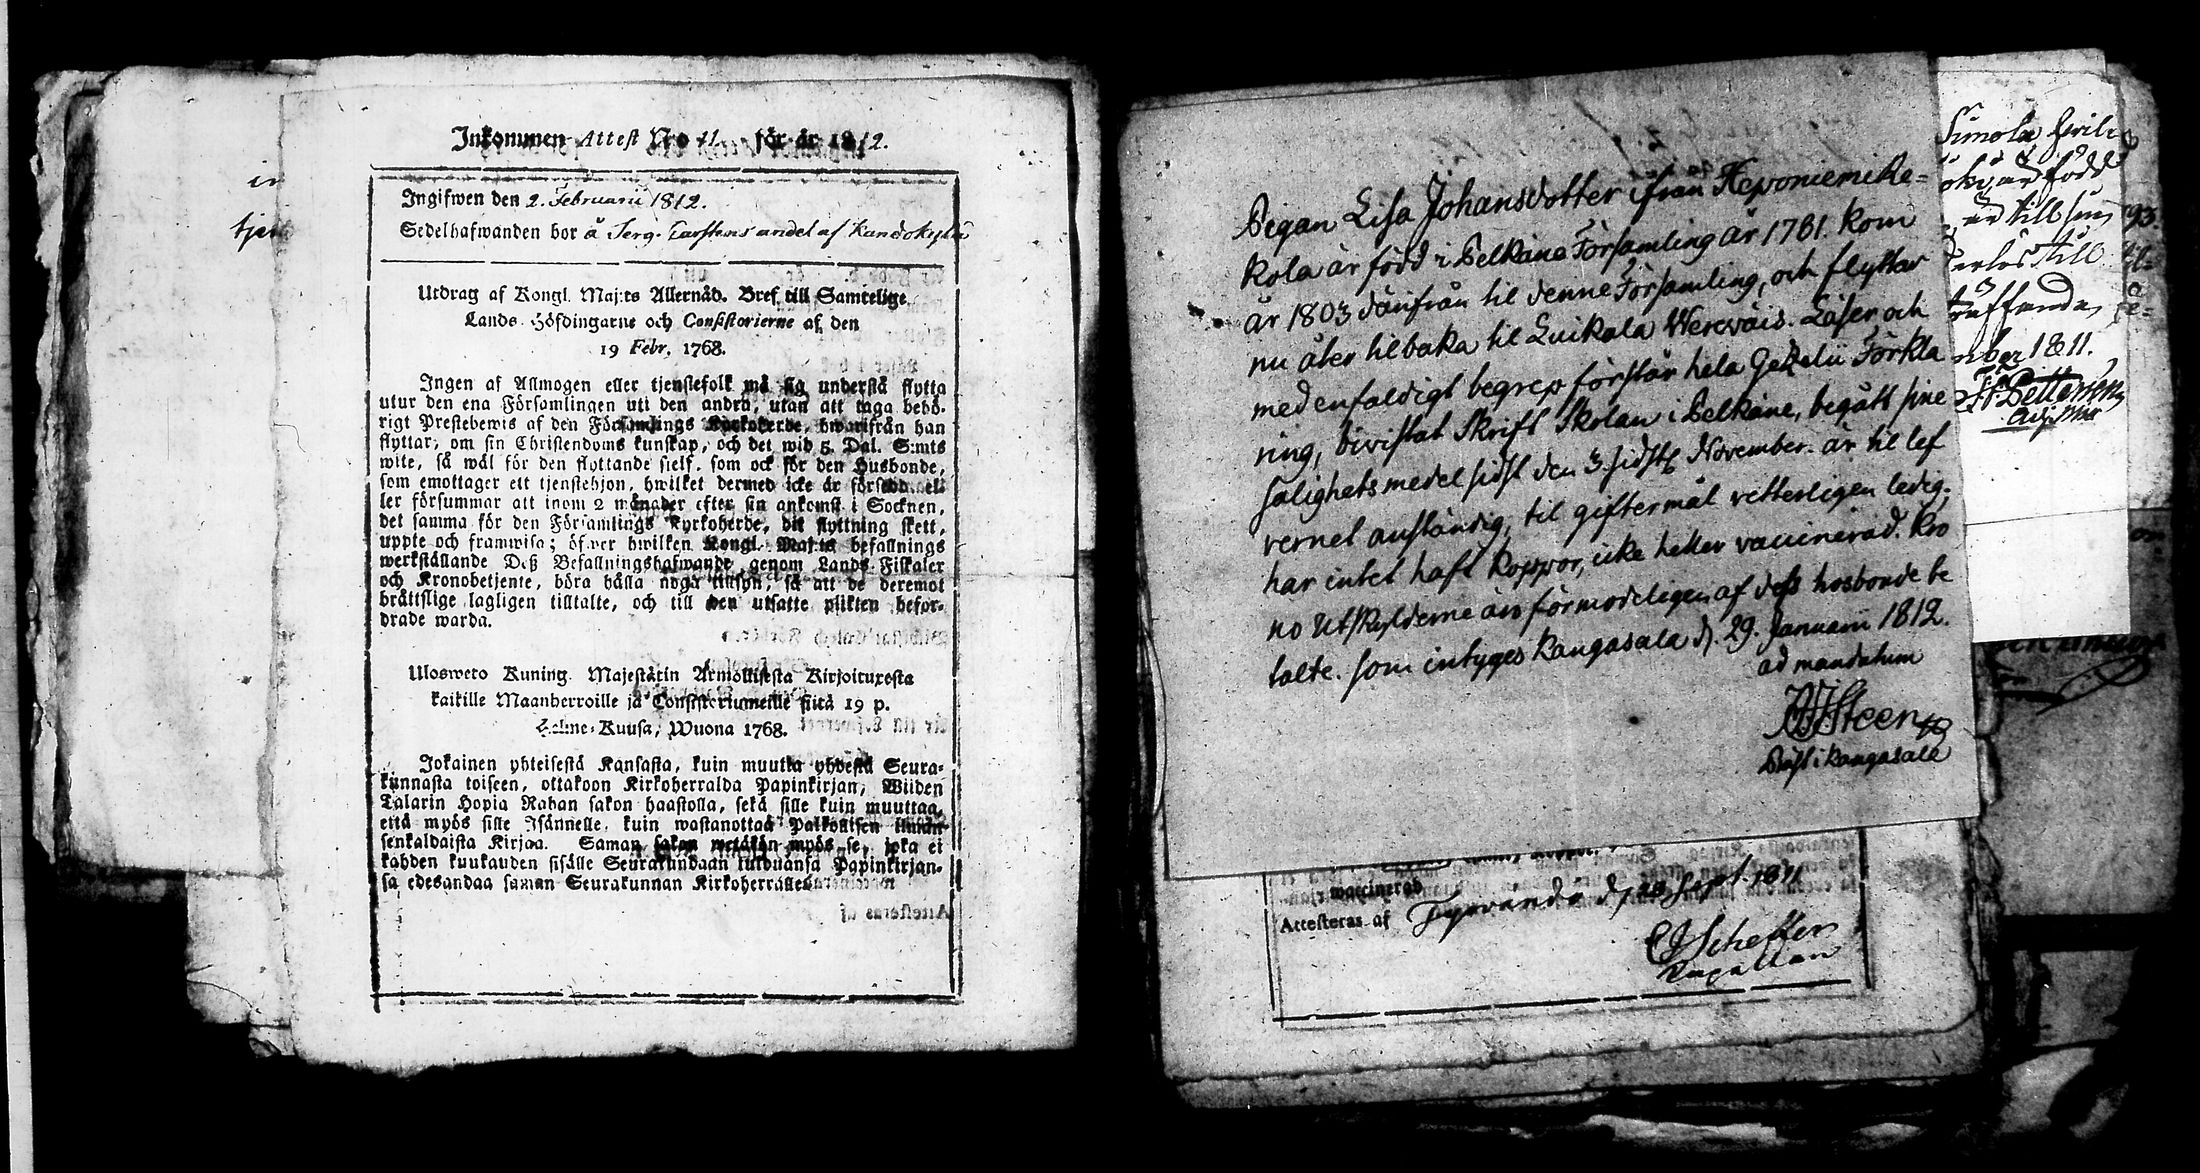 in
tjen
Inkommen Attest Nro 11. för år 1812.
Ingifwen den 2. Februarii 1812.
Sedelhafwanden bor å Serg. Carstens andel af Kandokylä
Utdrag af Kongl. Maj:ts Allernåd. Bref till Samtelige
Lands-Höfdingarne och Consistorierne af den
19 Febr. 1768.
Ingen af Allmogen eller tjenstefolk må sig understå flytta
utur den ena Församlingen uti den andra, utan att taga behö-
rigt Prestebewis af den Församlings Kyrkoherde, hwarifrån han
flyttar, om sin Christendoms kunskap, och det wid 5. Dal. S:mts
wite, så wäl för den flyttande sielf, som ock för den Husbonde,
som emottager ett tjenstehjon, hwilket dermed icke är försedd, el-
ler försummar att inom 2 månader efter sin ankomst i Socknen,
det samma för den Församlings Kyrkoherde, dit flyttning skett,
uppte och framwisa; öfwer hwilken Kongl. Maj:ts befallnings
werkställande Deß Befallningshafwande genom Lands-Fiskaler
och Kronobetjente, böra hålla noga tillsyn, så att de deremot
bråttslige lagligen tilltalte, och till den utsatte plikten befor-
drade warda.
Ulosweto Kuning. Majestätin Armollisesta Kirjoituxesta
kaikille Maanherroille ja Consistoriumeille siitä 19 p.
Helme-Kuusa, Wuona 1768.
Jokainen yhteisestä Kansasta, kuin muutta yhdestä Seura-
kunnasta toiseen, ottakoon Kirkoherralda Papinkirjan, Wiiden
Talarin Hopia Rahan sakon haastolla, sekä sille kuin muuttaa,
että myös sille Isännelle, kuin wastanottaa Palkollisen ilman
senkaldaista Kirjaa. Saman sakon wetäkön myös se, joka ei
kahden kuukauden sisälle Seurakundaan tulduansa Papinkirjan-
sa edesandaa saman Seurakunnan Kirkoherralle.
Pigan Lisa Johansdotter ifrån Heponiemi Ke-
kola är född i Pelkäne Församling år 1781. kom
år 1803 dänifrån til denne Församling, och flyttar
nu åter tilbaka til Luikala Werewäis. Läser och
med enfaldigt begrep förstår hela Gezelii Förkla
ring, biwistat Skrift Skolan i Pelkäne, begått sine
salighets medel sidst den 3. sidstl. November. är til lef
vernet anständig, til giftermål vetterligen ledig.
har intet haft koppor, icke heller vaccinerad. Kro
no Utskylderne äro förmodeligen af dess hosbonde be
talte. som intyges Kangasala d. 29. Januarii 1812.
ad mandatum
Steen
Präst i Kangasala
vaccinerad
Attesteras af Tyrvandå d. 28 Sept. 1811
CJ Scheffer
född
till sin
till
1811.
Pettersen
Adj. Min